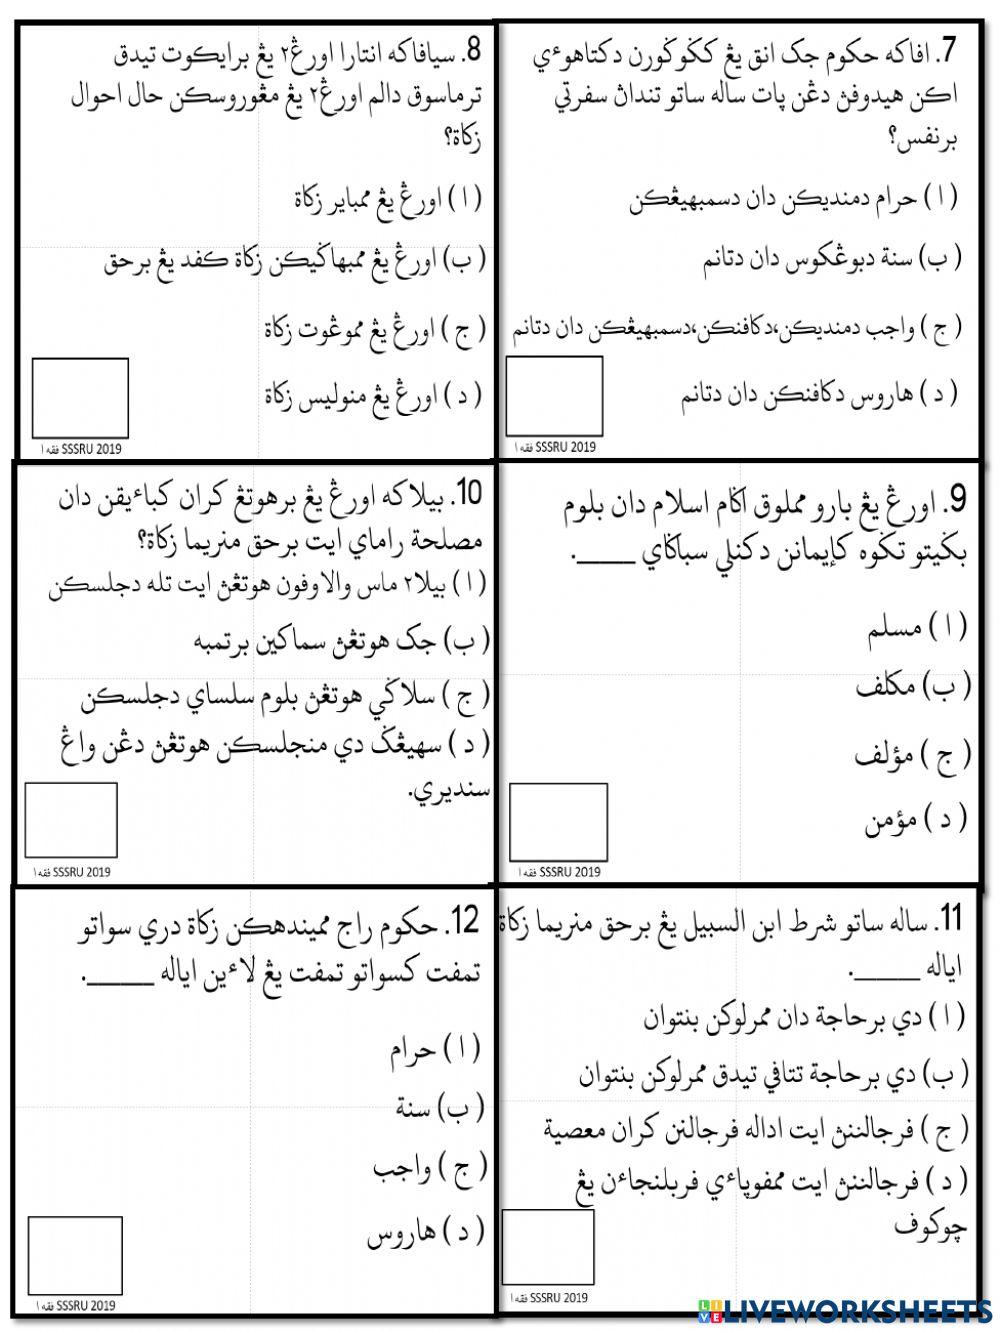 7. افاكه حكوم جک انق يڠ ككݢوݢورن دكتاهوءي
اكن هيدوفڽ دڠن ڤات ساله ساتو تنداڽ سفرتي
برنفس؟
( ا ) حرام دمنديكن دان دسمبهيڠكن
( ب) سنة دبوڠكوس دان دتانم
( ج ) واجب دمنديكن،دكافنكن،دسمبهيڠكن دان دتانم
( د ) هاروس دكافنكن دان دتانم
SSSRU 2019 فقه ١
8. سيافاكه انتارا اورڠ٢ يڠ برايكوت تيدق
ترماسوق دالم اورڠ٢ يڠ مڠوروسكن حال احوال
زكاة؟
( ا ) اورڠ يڠ ممباير زكاة
( ب) اورڠ يڠ ممبهاݢيكن زكاة كفد يڠ برحق
( ج ) اورڠ يڠ مموڠوت زكاة
( د ) اورڠ يڠ منوليس زكاة
SSSRU 2019 فقه ١
9. اورڠ يڠ بارو مملوق اݢام اسلام دان بلوم
بݢيتو تݢوه كإيمانن دكنلي سباݢاي _____.
( ا ) مسلم
( ب) مكلف
( ج ) مؤلف
( د ) مؤمن
SSSRU 2019 فقه ١
10. بيلاكه اورڠ يڠ برهوتڠ كران كباءيقن دان
مصلحة راماي ايت برحق منريما زكاة؟
( ا ) بيلا٢ ماس والاوفون هوتڠڽ ايت تله دجلسكن
( ب) جک هوتڠڽ سماكين برتمبه
( ج ) سلاݢي هوتڠڽ بلوم سلساي دجلسكن
( د ) سهيڠݢ دي منجلسكن هوتڠڽ دڠن واڠ
سنديري.
SSSRU 2019 فقه ١
11. ساله ساتو شرط ابن السبيل يڠ برحق منريما زكاة
اياله _____.
( ا ) دي برحاجة دان ممرلوكن بنتوان
( ب) دي برحاجة تتافي تيدق ممرلوكن بنتوان
( ج ) فرجالننڽ ايت اداله فرجالنن كران معصية
( د ) فرجالننڽ ايت ممفوياءي فربلنجاءن يڠ
چوكوف
SSSRU 2019 فقه ١
12. حكوم راج مميندهكن زكاة دري سواتو
تمفت كسواتو تمفت يڠ لاءين اياله _____.
( ا ) حرام
( ب) سنة
( ج ) واجب
( د ) هاروس
SSSRU 2019 فقه ١
LIVEWORKSHEETS